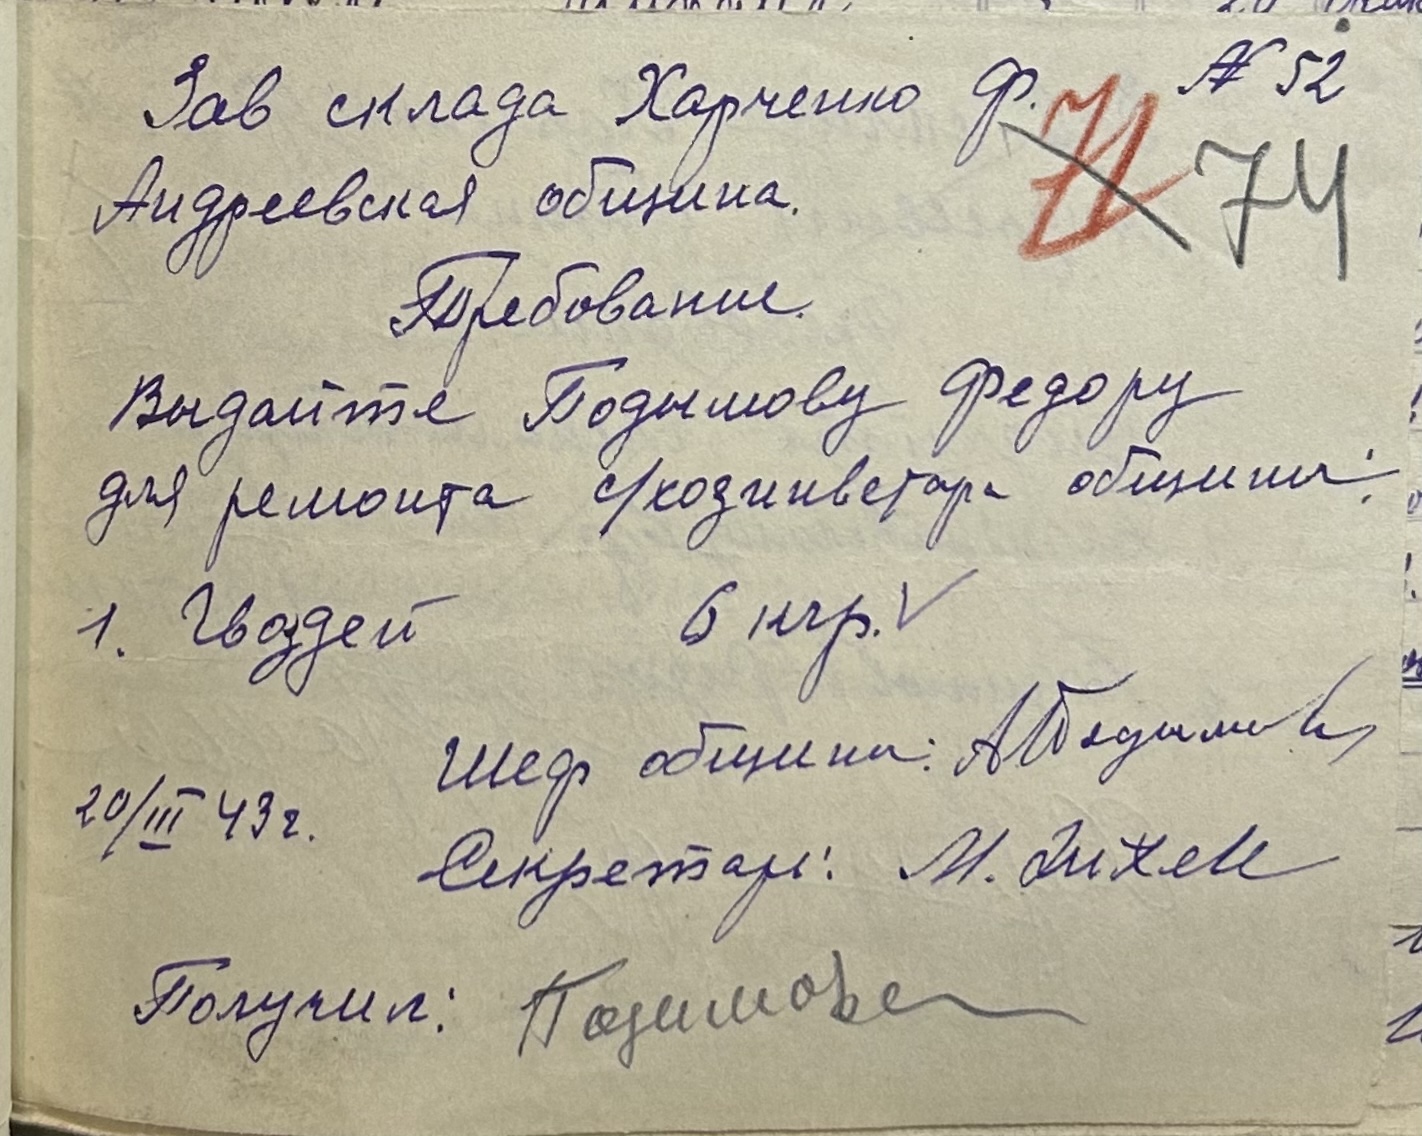 Зав склада Харченко Ф. № 52
Андреевская община. 74
Требование.
Выдайте Подымову Федору
для ремонта с/хозинветара общины:
1. Гвоздей 6 кгр. √
Шеф общины: А Подымов
20/III 43 г.
Секретарь: М.
Получил: Подимова